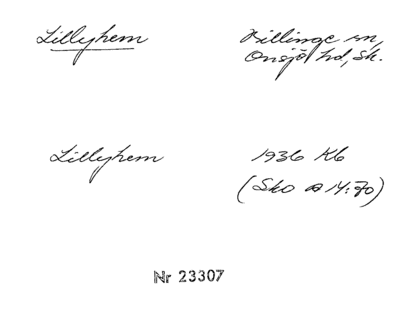 Lillyhem Billinge sn,
Onsjö hd, Sk.
Lillyhem 1936 Kb
(Sko a 14:70)
Nr 23307